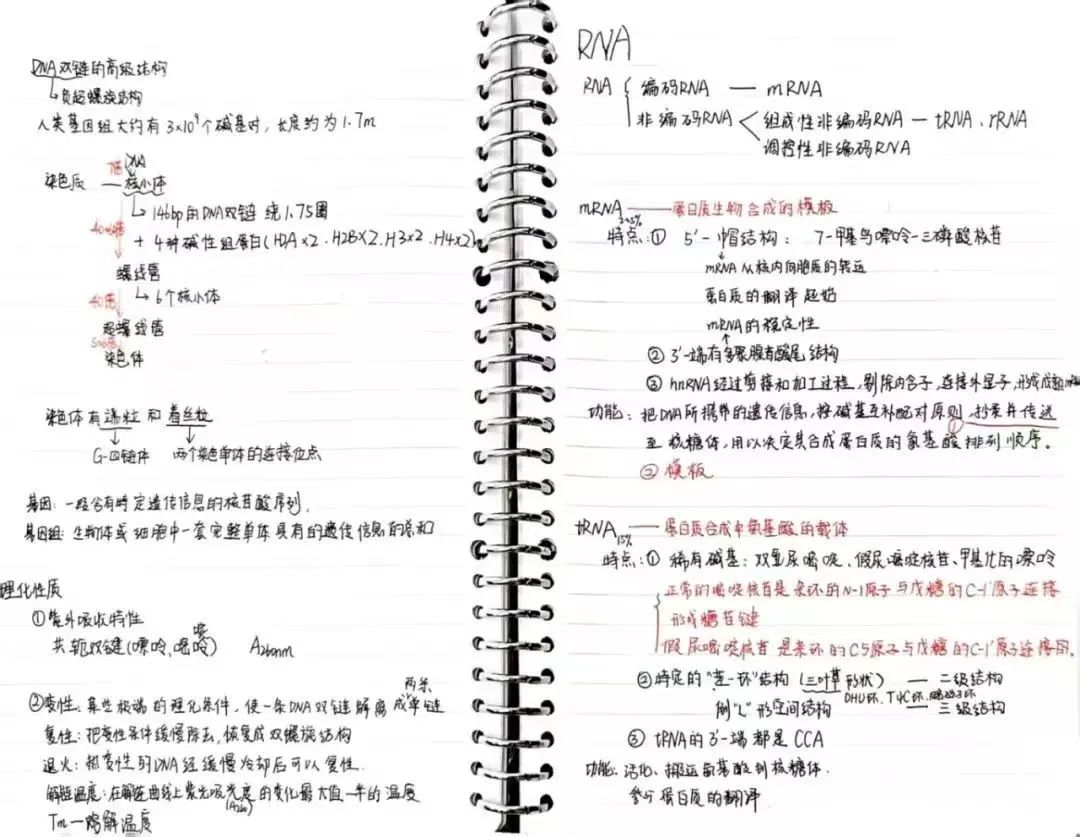 DNA双链的高级结构
↳负超螺旋结构
人类基因组大约有 3×10⁹个碱基对, 长度约为1.7m
7倍 DNA
染色质 — 核小体
↳ 146bp的DNA双链 绕1.75圈
40~60倍 + 4种碱性组蛋白(H2A×2、H2B×2、H3×2、H4×2)
螺线管
40倍 ↳ 6个核小体
超螺线管
5~6倍
染色体
染色体有端粒 和 着丝粒
G-四链体 两个染色单体的连接位点
基因: 一段含有特定遗传信息的核苷酸序列.
基因组: 生物体或细胞中一套完整单体具有的遗传信息的总和
理化性质
①紫外吸收特性
共轭双键(嘌呤、嘧啶) A260nm
②变性: 某些极端的理化条件, 使一条DNA双链解离成两条单链
复性: 把变性条件缓慢除去, 恢复成双螺旋结构
退火: 热变性的DNA经缓慢冷却后可以复性.
解链温度: 在解链曲线上紫外吸光度的变化最大值一半的温度
(A260)
Tm—熔解温度
RNA
RNA { 编码RNA — mRNA
非编码RNA < 组成性非编码RNA — tRNA、rRNA
调控性非编码RNA
mRNA — 蛋白质生物合成的模板
2~5%
特点: ① 5'-帽结构: 7-甲基鸟嘌呤-三磷酸核苷
mRNA从核内向胞质的转运
蛋白质的翻译起始
mRNA的稳定性
② 3'-端有多聚腺苷酸尾结构
③ hnRNA经过剪接和加工过程, 剔除内含子, 连接外显子, 形成成熟mRNA
功能: 把DNA所携带的遗传信息, 按碱基互补配对原则, 抄录并传送
①
至核糖体, 用以决定其合成蛋白质的氨基酸排列顺序。
② 模板
tRNA — 蛋白质合成中氨基酸的载体
15%
特点: ① 稀有碱基: 双氢尿嘧啶、假尿嘧啶核苷、甲基化的嘌呤
正常的嘧啶核苷是杂环的N-1原子与戊糖的C-1'原子连接
形成糖苷键
假尿嘧啶核苷是杂环的C5原子与戊糖的C-1'原子连接
②特定的"茎-环"结构 (三叶草形状) — 二级结构
DHU环、TψC环、反密码子环
倒"L"形空间结构 — 三级结构
③ tRNA的3'-端都是CCA
功能: 活化、搬运氨基酸到核糖体.
参与蛋白质的翻译